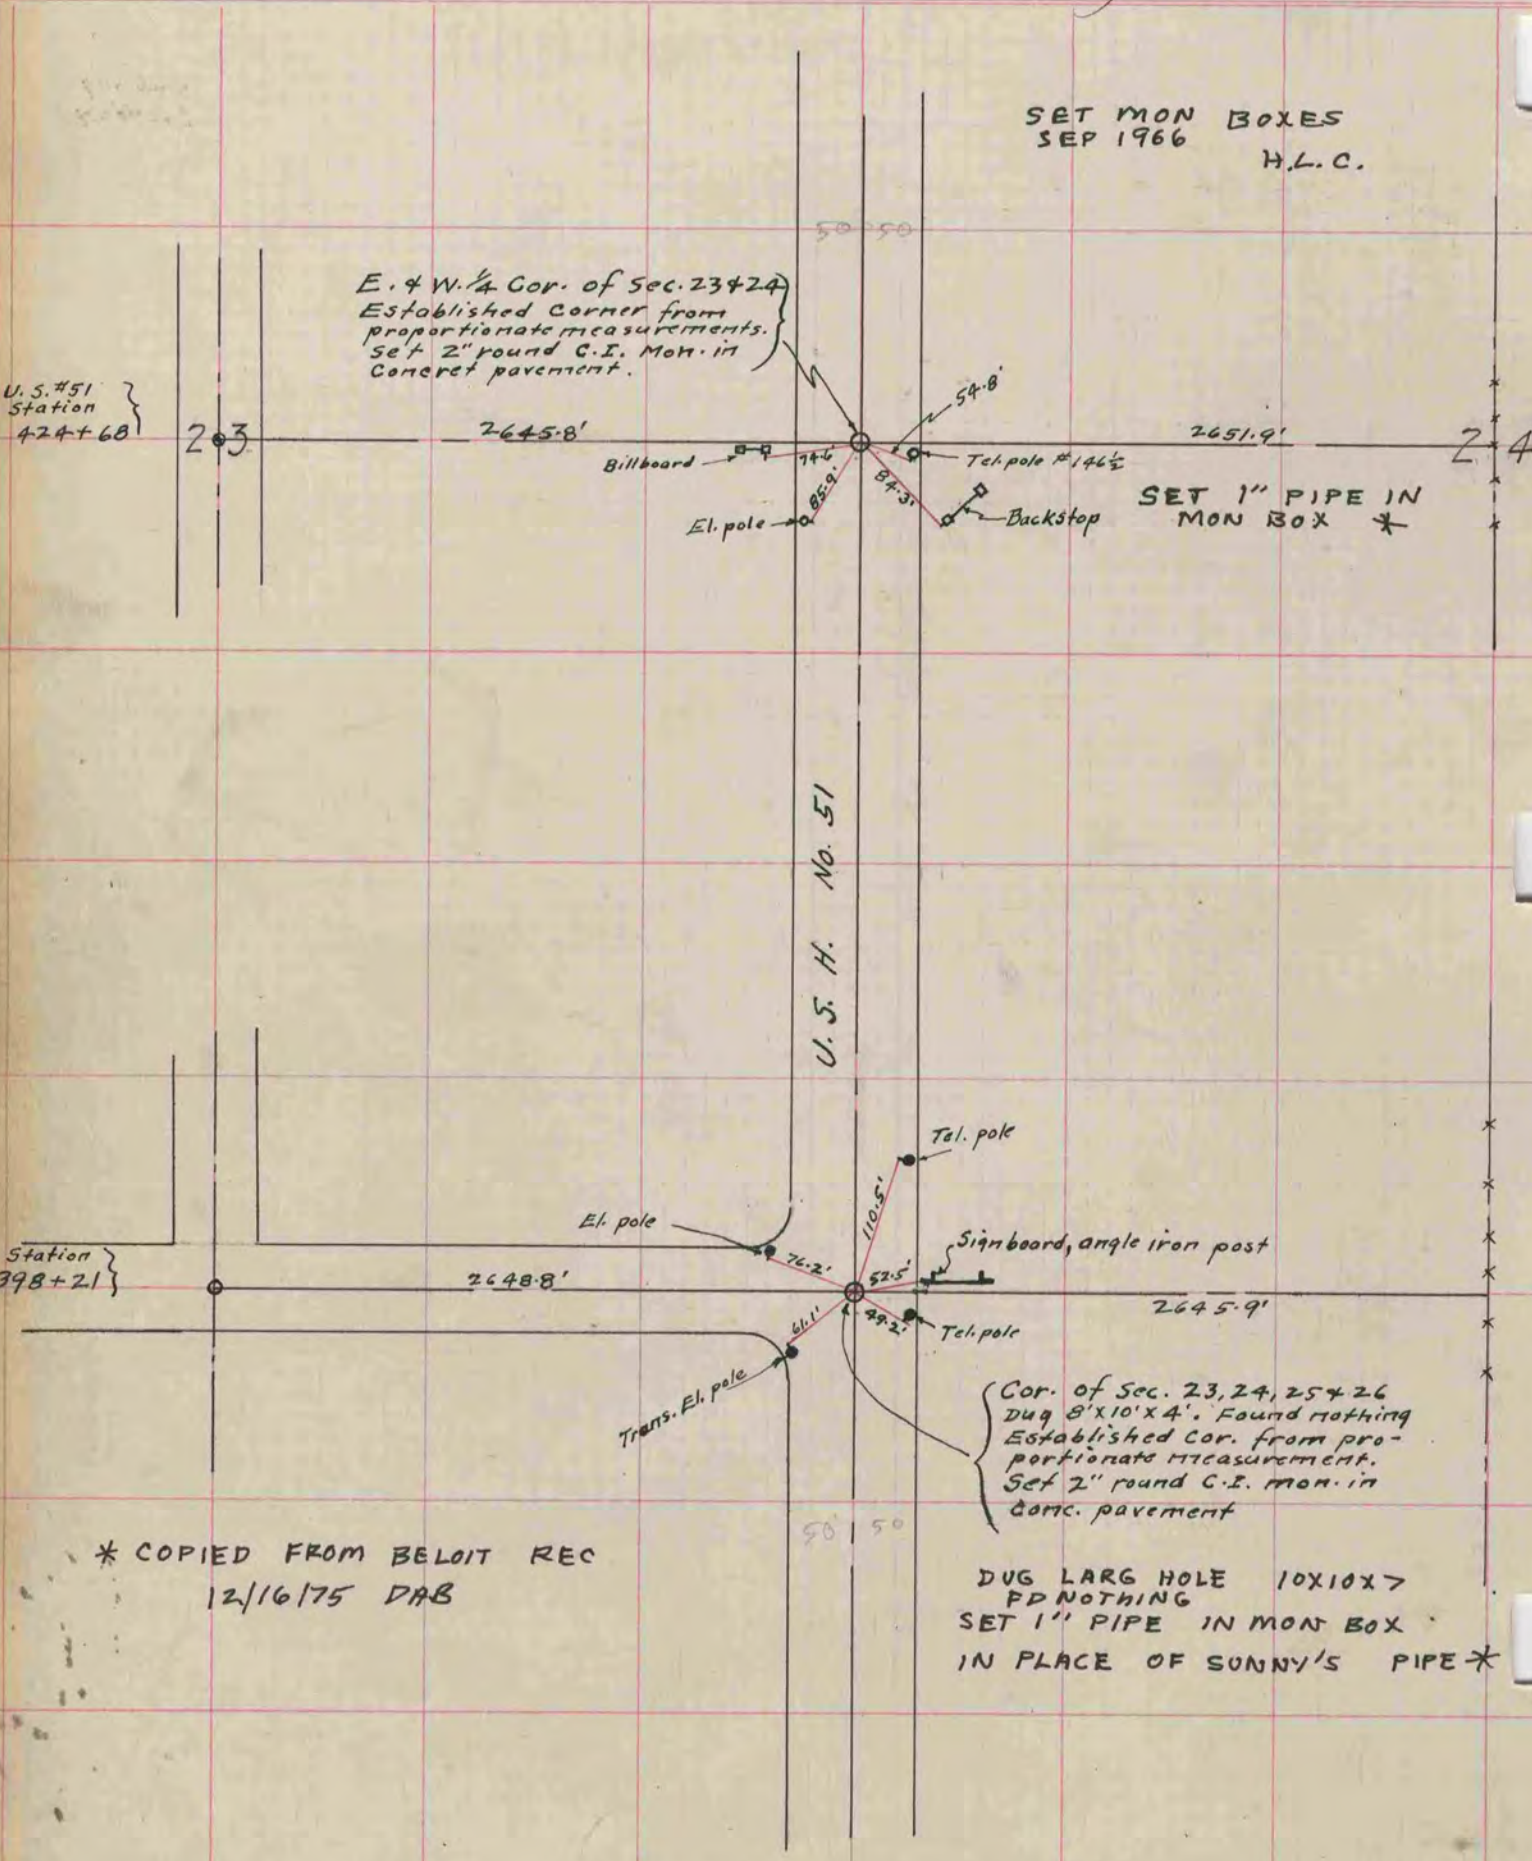 SET MON BOXES
SEP 1966
H.L.C.
50 50
E. & W. 1/4 Cor. of Sec. 23 & 24
Established Corner from
proportionate measurements.
Set 2" round C.I. Mon. in
Concret pavement.
U.S. #51
Station
424+68
23
2645.8'
54.8'
2651.9'
24
Billboard
74.6'
Tel. pole #146½
85.9'
84.3'
El. pole
Backstop
SET 1" PIPE IN
MON BOX *
U.S.H. No. 51
Tel. pole
110.5'
El. pole
Signboard, angle iron post
76.2'
52.5'
Station
398+21
2648.8'
2645.9'
61.1'
49.2'
Tel. pole
Trans. El. pole
Cor. of Sec. 23, 24, 25 & 26
Dug 8'x10'x4'. Found nothing
Established Cor. from pro-
portionate measurement.
Set 2" round C.I. mon. in
conc. pavement
50' 50
* COPIED FROM BELOIT REC
12/16/75 DAB
DUG LARG HOLE 10X10X7
FD NOTHING
SET 1" PIPE IN MON BOX
IN PLACE OF SUNNY'S PIPE *